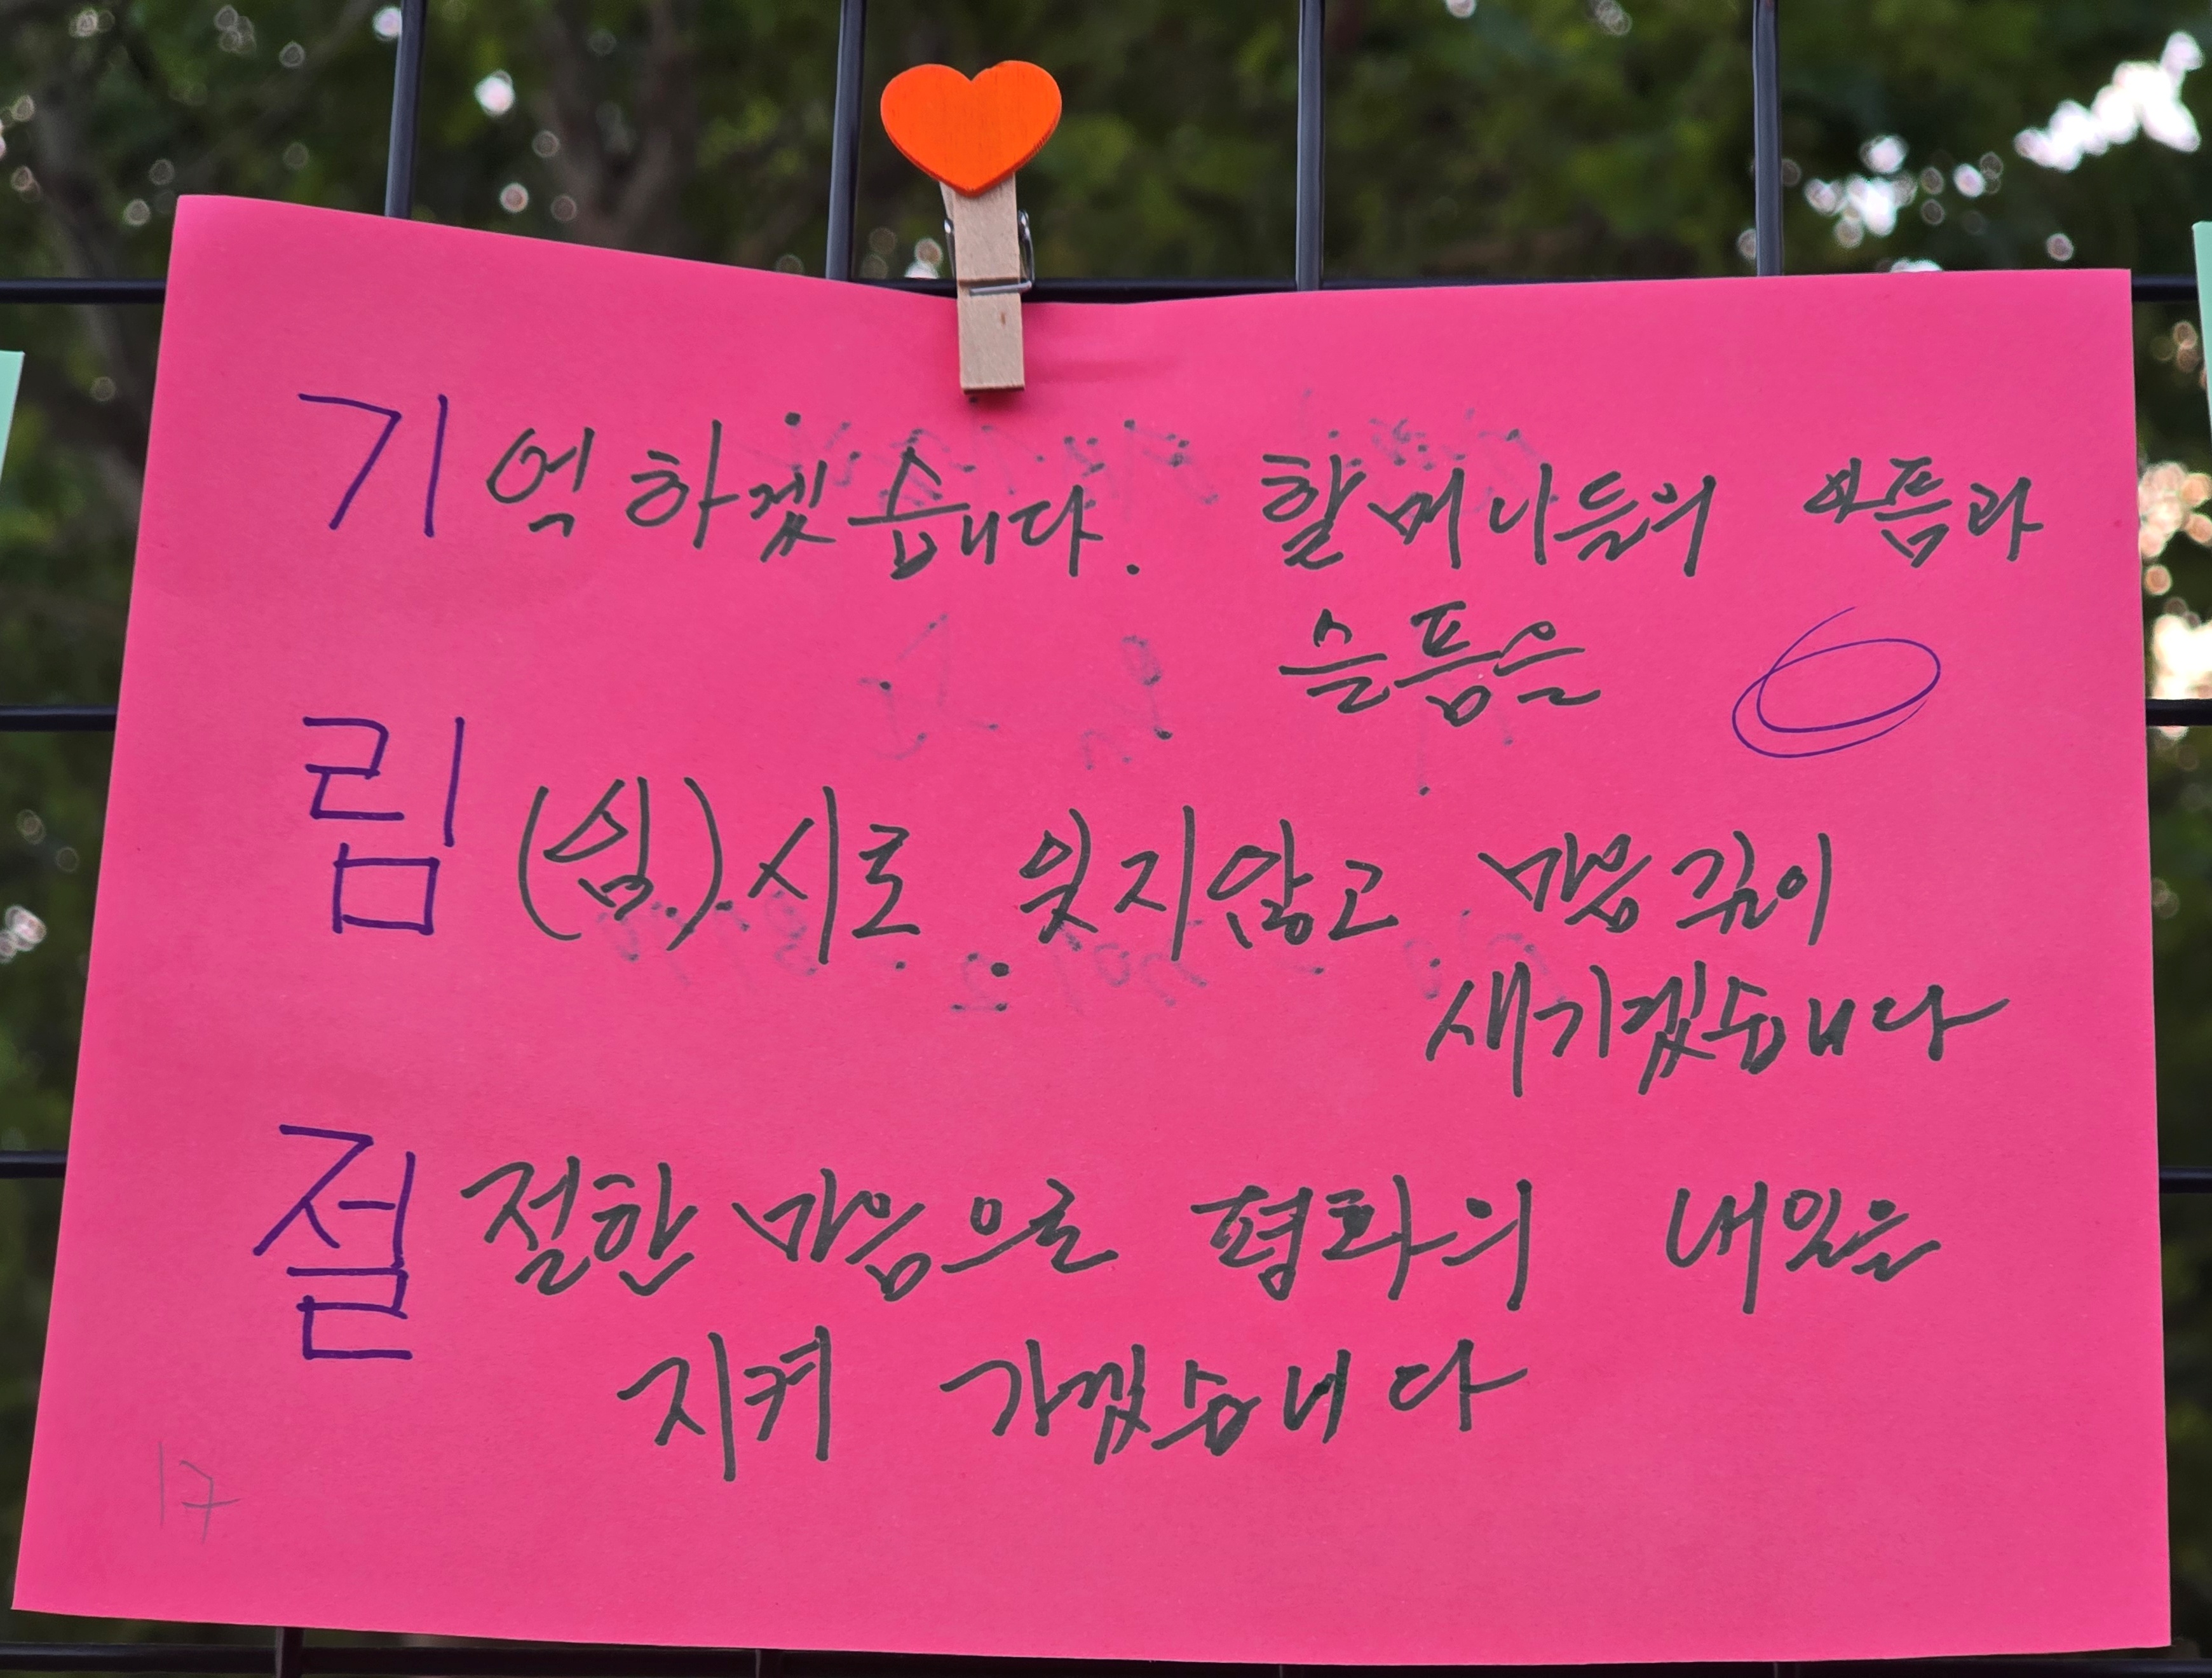 기억하겠습니다. 할머니들의 아픔과
슬픔을
림(쉼)시로 잊지않고 마음깊이
새기겠습니다
절절한 마음으로 평화의 내일을
지켜 가겠습니다
17